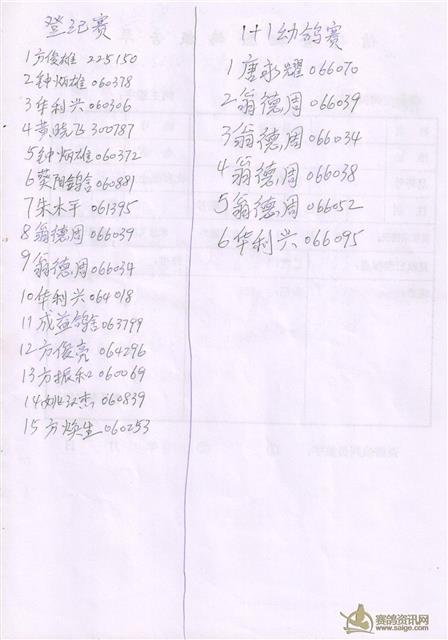 登记赛
1方俊雄 225150
2钟炳雄 060378
3华利兴 060306
4黄晓飞 300787
5钟炳雄 060372
6荥阳鸽舍 060881
7朱木平 061395
8翁德周 066039
9翁德周 066034
10华利兴 064018
11成益鸽舍 063799
12方俊亮 064296
13方振和 060069
14姚汉杰 060839
15方焕生 060253
1+1幼鸽赛
1唐永耀 066070
2翁德周 066039
3翁德周 066034
4翁德周 066038
5翁德周 066052
6华利兴 066095
赛鸽资讯网
www.saige.com